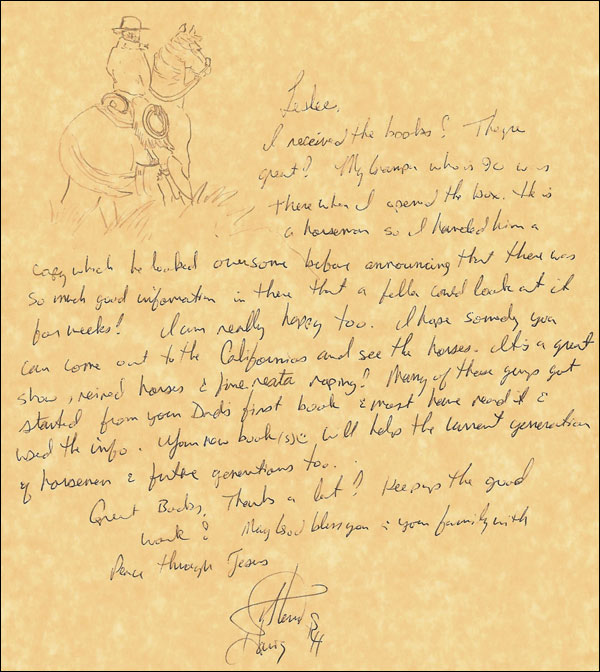 Leslee,
I received the books! They're
great! My Grampa who is 90 was
there when I opened the box. He is
a horseman so I handed him a
copy which he looked over some before announcing that there was
so much good information in there that a fella could look at it
for weeks! I am really happy too. I hope someday you
can come out to the Californios and see the horses. It's a great
show, reined horses & fine reata roping! Many of those guys got
started from your Dad's first book & most have read it &
used the info. Your new book(s) will help the current generation
of horsemen & future generations too.
Great Books, Thanks a lot! Keep up the good
work! May God bless you & your family with
Peace through Jesus